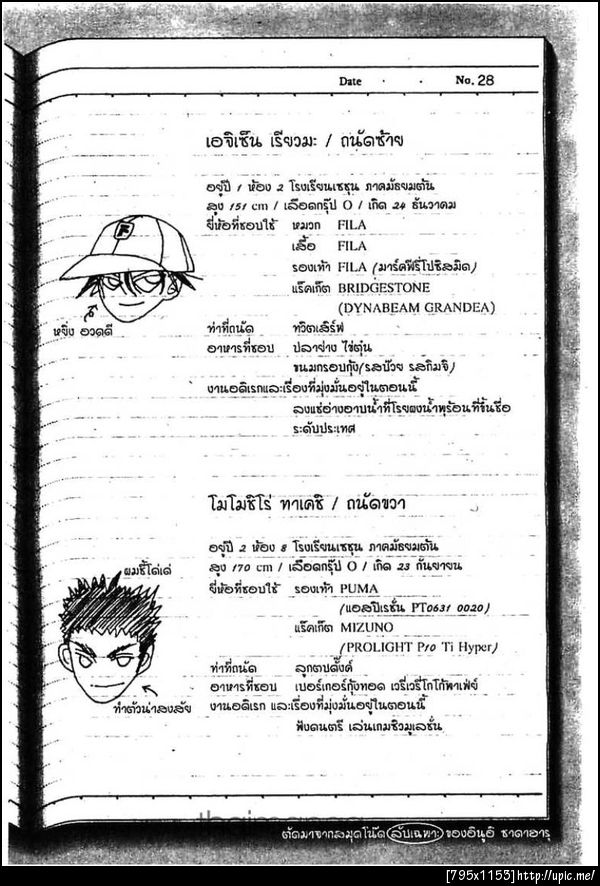 Date . . No. 28
เอจิเซ็น เรียวมะ / ถนัดซ้าย
อยู่ปี 1 ห้อง 2 โรงเรียนเซชุน ภาคมัธยมต้น
สูง 151 cm / เลือดกรุ๊ป O / เกิด 24 ธันวาคม
ยี่ห้อที่ชอบใช้ หมวก FILA
เสื้อ FILA
รองเท้า FILA (มาร์คฟีรี่โปซิสมิด)
แร็คเก็ต BRIDGESTONE
(DYNABEAM GRANDEA)
หยิ่ง อวดดี
ท่าที่ถนัด ทวิตเสิร์ฟ
อาหารที่ชอบ ปลาย่าง ไข่ตุ๋น
ขนมกรอบกุ้ง(รสบ๊วย รสกิมจิ)
งานอดิเรกและเรื่องที่มุ่งมั่นอยู่ในตอนนี้
ลงแช่อ่างอาบน้ำที่โรยผงน้ำพุร้อนที่ขึ้นชื่อ
ระดับประเทศ
โมโมชิโร่ ทาเคชิ / ถนัดขวา
อยู่ปี 2 ห้อง 8 โรงเรียนเซชุน ภาคมัธยมต้น
สูง 170 cm / เลือดกรุ๊ป O / เกิด 23 กันยายน
ผมชี้โด่เด่
ยี่ห้อที่ชอบใช้ รองเท้า PUMA
(แอสปิเรชั่น PT0631 0020)
แร็คเก็ต MIZUNO
(PROLIGHT Pro Ti Hyper)
ท่าที่ถนัด ลูกตบดั๊งค์
อาหารที่ชอบ เบอร์เกอร์กุ้งทอด เวรี่เวรี่โกโก้พาเฟ่ย์
ทำตัวน่าสงสัย
งานอดิเรก และเรื่องที่มุ่งมั่นอยู่ในตอนนี้
ฟังดนตรี เล่นเกมซิวมูเลชั่น
ตัดมาจากสมุดโน้ต ลับเฉพาะ ของอินูอิ ซาดาฮารุ
[795x1153]http://upic.me/